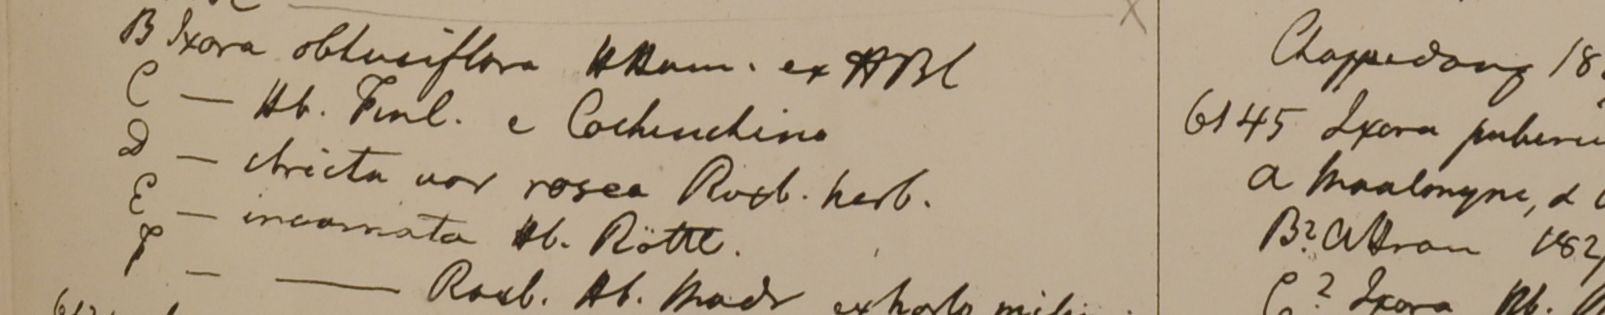 B Ixora obtusiflora HHam. ex HBC
C — Hb. Finl. e Cochinchina
D — stricta var rosea Roxb. herb.
E — incarnata Hb. Röttl.
F — —— Roxb. Hb. Madr ex horto
Chappedong 18
6145 Ixora
a Maulmyne, &
B? Attran 182
C? Ixora Hb.